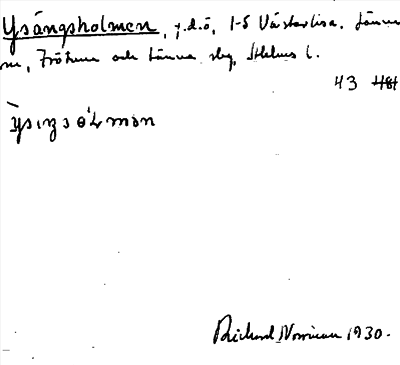 Ysångsholmen, j.d.ö, 1-5 Västerlisa. Länna
sn, Frötuna och Länna skg, Sthlms l.
43 481
Richard Norrman 1930.